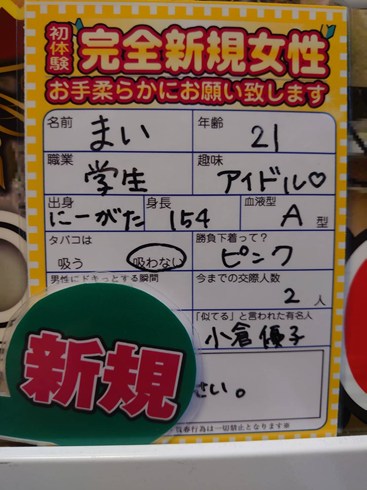 初体験 完全新規女性
お手柔らかにお願い致します
名前 まい 年齢 21
職業 学生 趣味 アイドル♡
出身 にーがた 身長 154 血液型 A 型
タバコは 吸う 吸わない 勝負下着って? ピンク
男性にドキッとする瞬間 今までの交際人数 2 人
「似てる」と言われた有名人 小倉優子
新規
さい。
春行為は一切禁止となります※